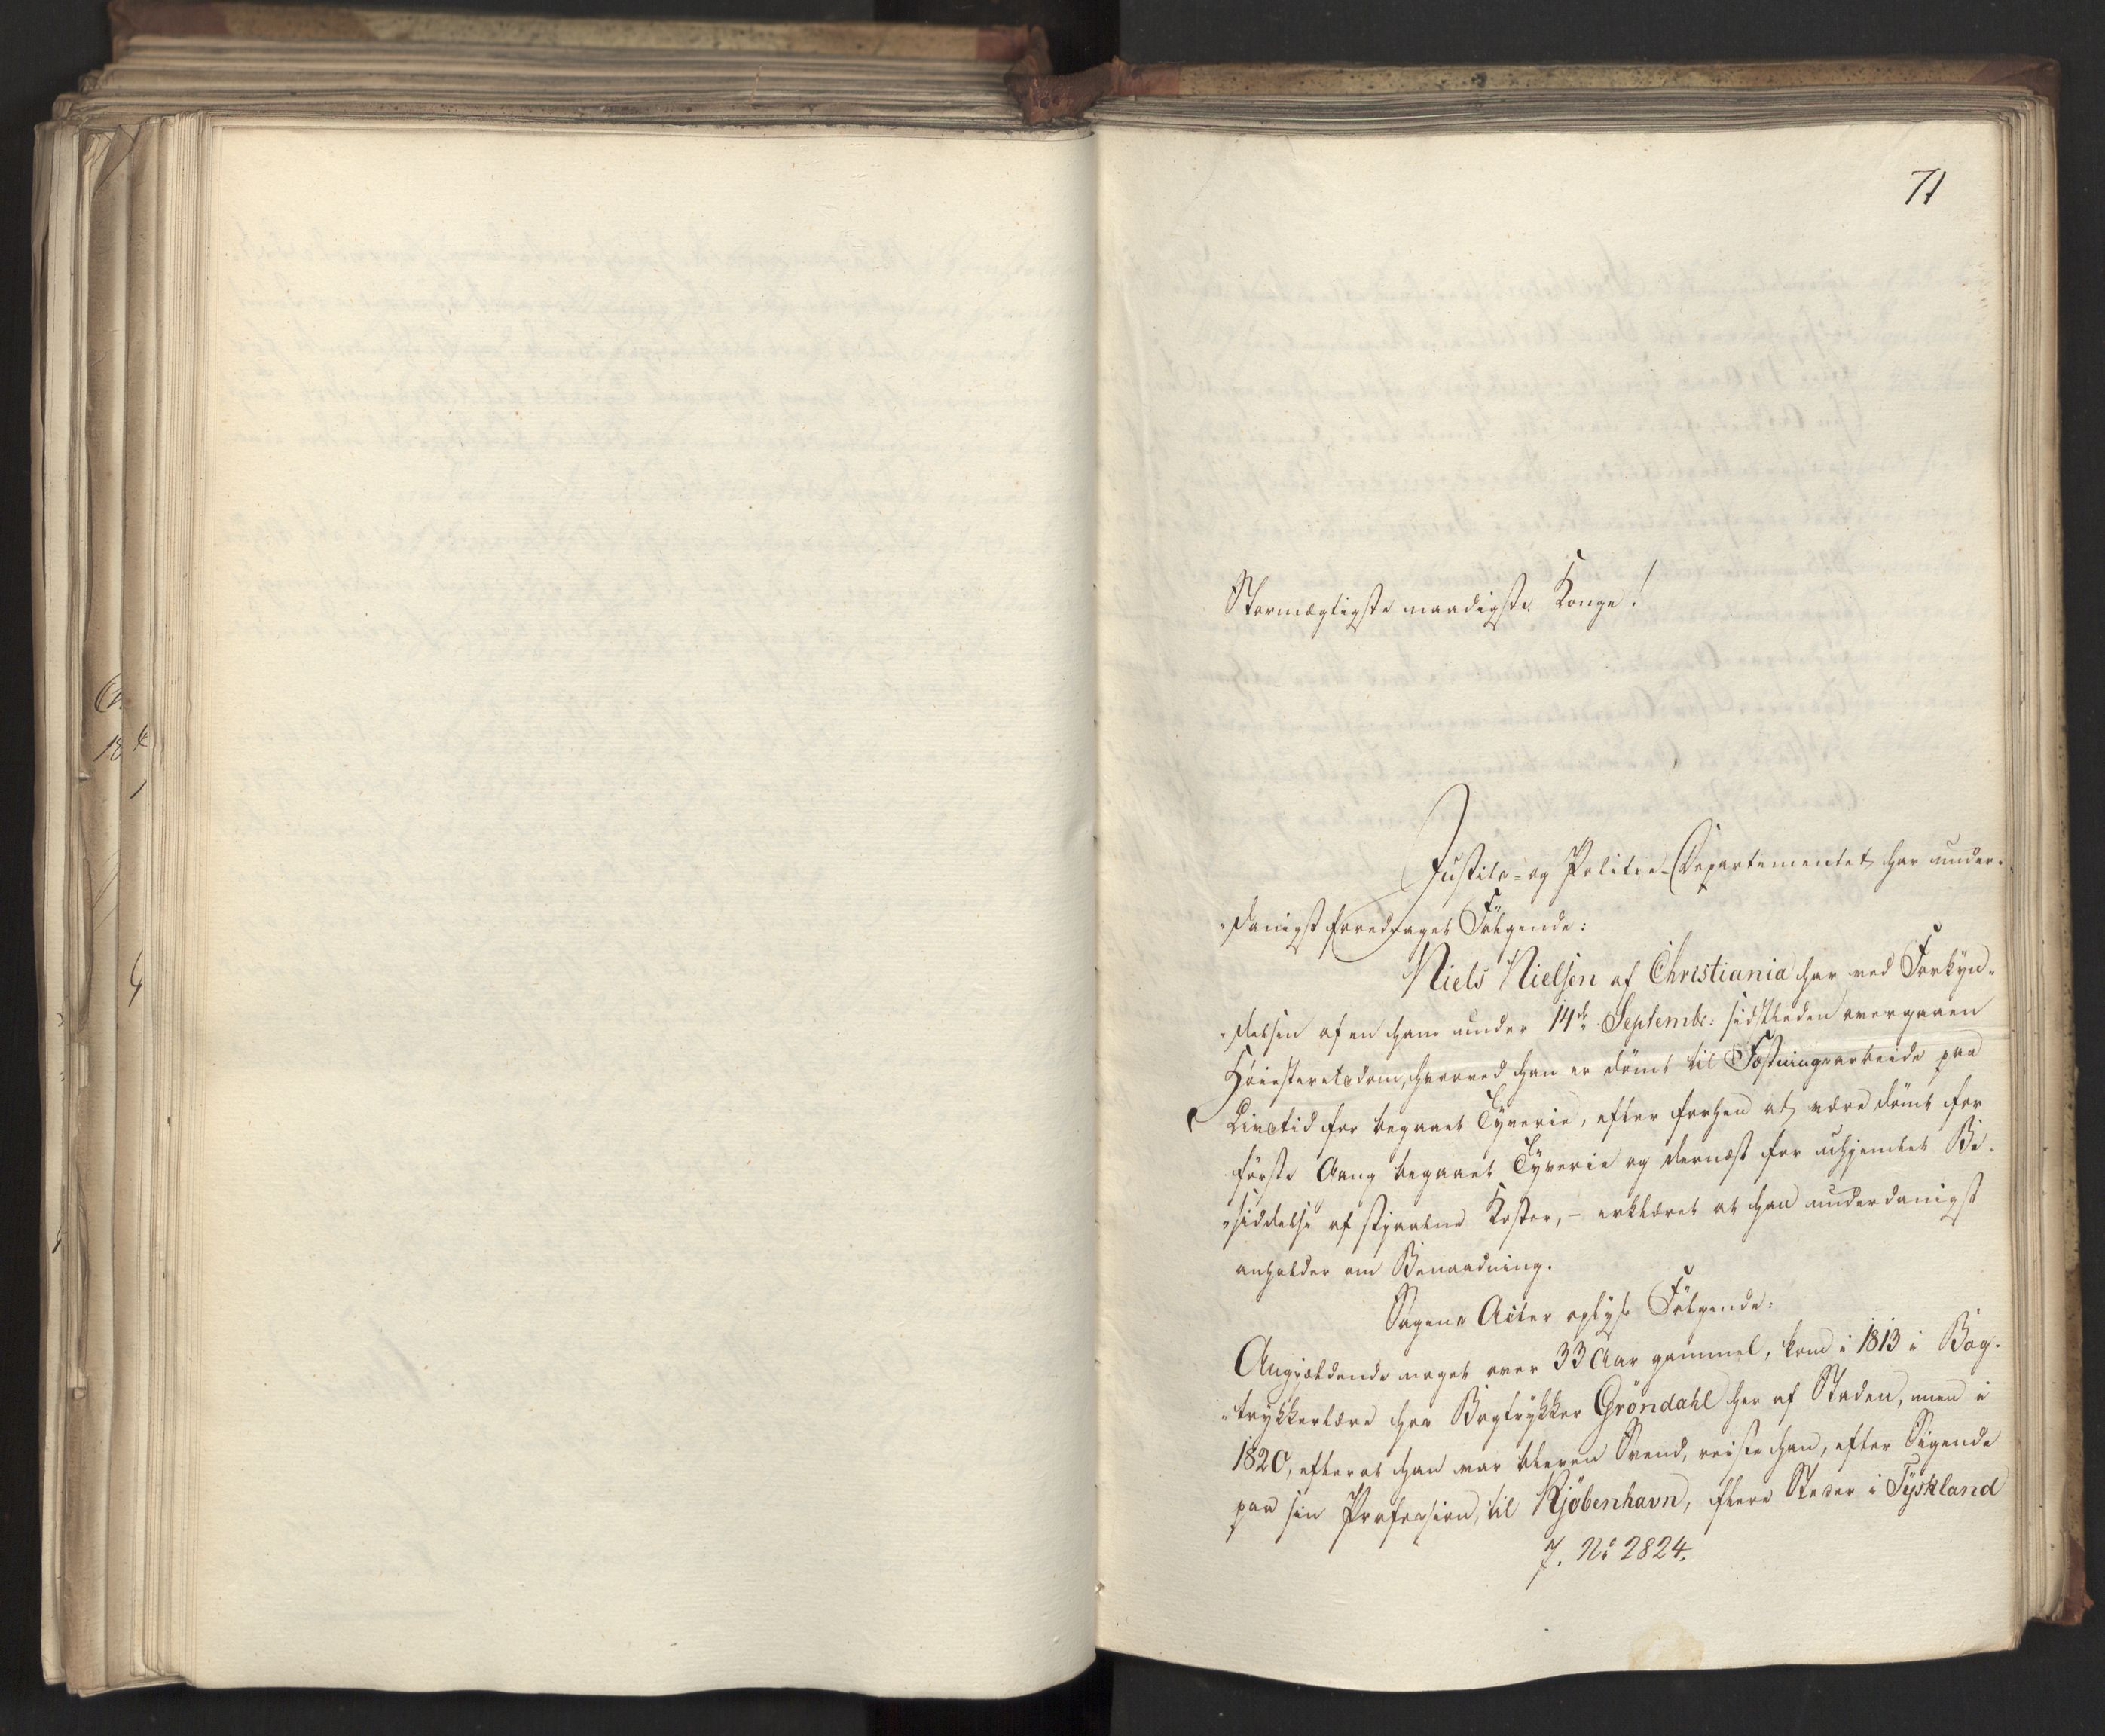 71
Stormægtigste naadigste Konge!
Justits- og Politie-Departementet har under-
-danigst foredraget Fölgende:
Niels Nielsen af Christiania har ved Forkyn-
-delsen af en ham under 14de Septembr: sidstleden overgaaen
Höiesteretsdom, hvorved han er dömt til Fæstningsarbeide paa
Livstid for begaaet Tyverie, efter forhen at være dömt for
förste Gang begaaet Tyverie og dernæst for uhjemlet Be-
-siddelse af stjaalne Koster, - erklæret at han underdanigst
anholder om Benaadning.
Sagens Acter oplyse Fölgende:
Angjældende noget over 33 Aar gammel, kom i 1813 i Bog-
-trykkerlære hos Bogtrykker Gröndahl her af Staden, men i
1820, efterat han var bleven Svend, reiste han, efter Sigende
paa sin Profession, til Kjöbenhavn, flere Steder i Tydskland
J. No 2824.